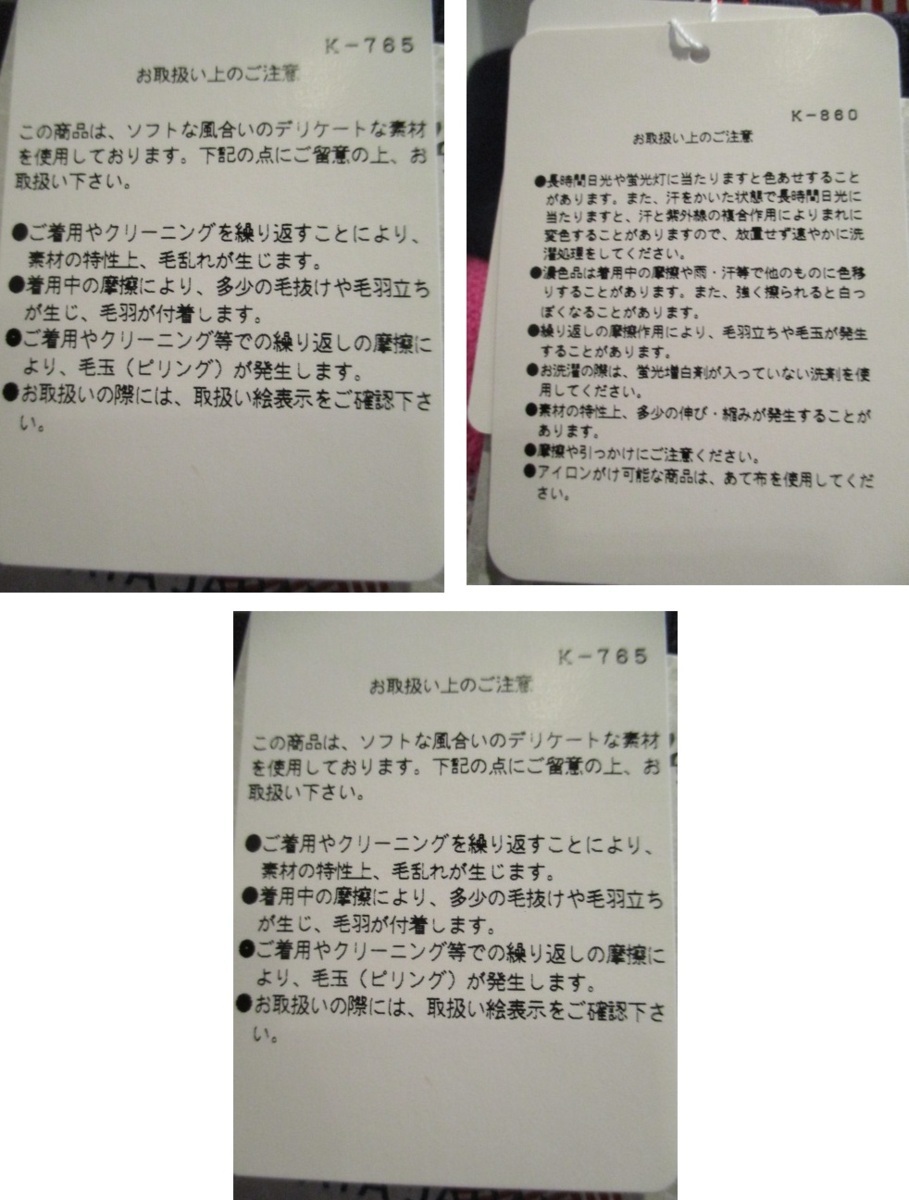 K-765
お取扱い上のご注意
この商品は、ソフトな風合いのデリケートな素材
を使用しております。下記の点にご留意の上、お
取扱い下さい。
●ご着用やクリーニングを繰り返すことにより、
素材の特性上、毛乱れが生じます。
●着用中の摩擦により、多少の毛抜けや毛羽立ち
が生じ、毛羽が付着します。
●ご着用やクリーニング等での繰り返しの摩擦に
より、毛玉（ピリング）が発生します。
●お取扱いの際には、取扱い絵表示をご確認下さ
い。
K-860
お取扱い上のご注意
●長時間日光や蛍光灯に当たりますと色あせすること
があります。また、汗をかいた状態で長時間日光に
当たりますと、汗と紫外線の複合作用によりまれに
変色することがありますので、放置せず速やかに洗
濯処理をしてください。
●濃色品は着用中の摩擦や雨・汗等で他のものに色移
りすることがあります。また、強く擦られると白っ
ぽくなることがあります。
●繰り返しの摩擦作用により、毛羽立ちや毛玉が発生
することがあります。
●お洗濯の際は、蛍光増白剤が入っていない洗剤を使
用してください。
●素材の特性上、多少の伸び・縮みが発生することが
あります。
●摩擦や引っかけにご注意ください。
●アイロンがけ可能な商品は、あて布を使用してくだ
さい。
K-765
お取扱い上のご注意
この商品は、ソフトな風合いのデリケートな素材
を使用しております。下記の点にご留意の上、お
取扱い下さい。
●ご着用やクリーニングを繰り返すことにより、
素材の特性上、毛乱れが生じます。
●着用中の摩擦により、多少の毛抜けや毛羽立ち
が生じ、毛羽が付着します。
●ご着用やクリーニング等での繰り返しの摩擦に
より、毛玉（ピリング）が発生します。
●お取扱いの際には、取扱い絵表示をご確認下さ
い。